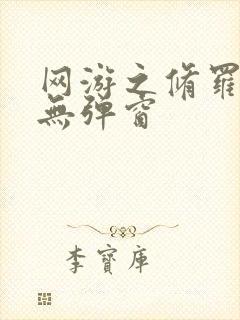 网游之脩羅
無弹窗
李寶庫